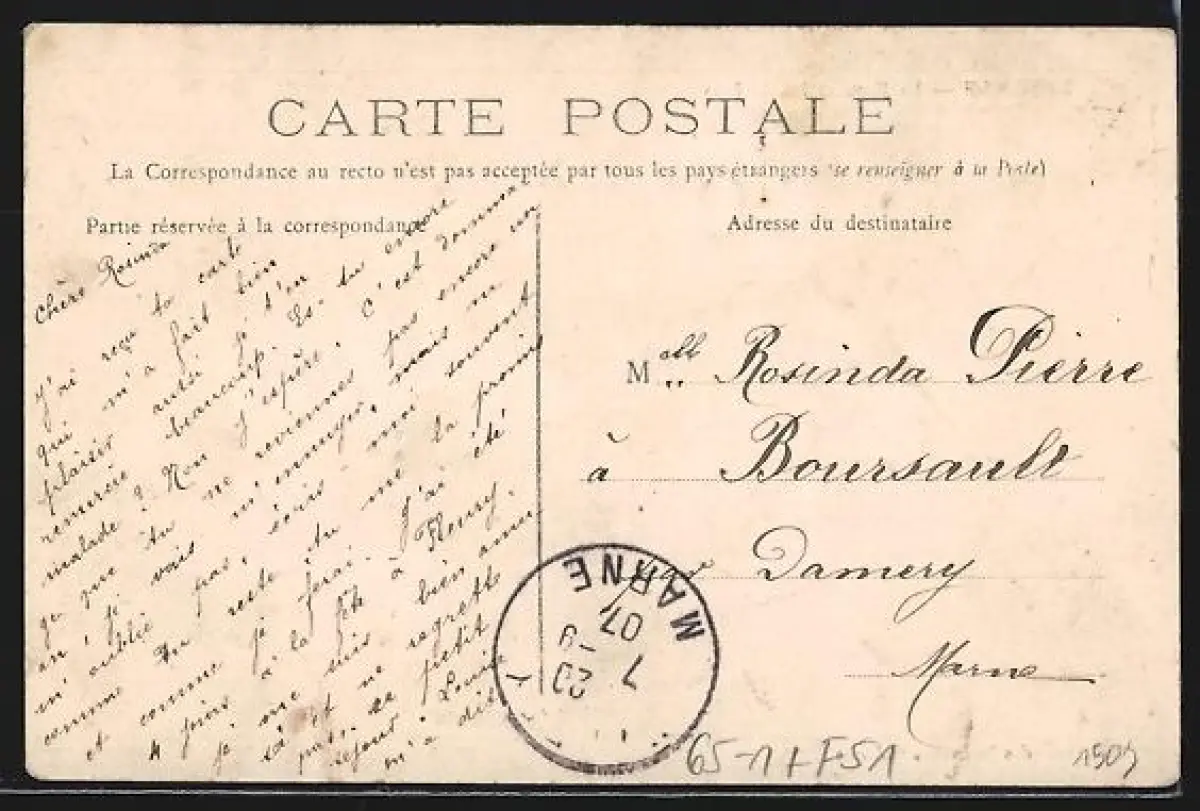 CARTE POSTALE
La Correspondance au recto n'est pas acceptée par tous les pays étrangers (se renseigner à la Poste)
Partie réservée à la correspondance
Adresse du destinataire
Chère Rosinda
J'ai reçu ta carte
qui m'a fait bien
plaisir aussi je t'en
remercie beaucoup. Es-tu encore
malade? Non j'espère. C'est domma
ge que tu ne reviennes pas encore un
an, je vais m'ennuyer, mais ne
m'oublie pas, écris moi souvent
comme du reste tu me la promis
et comme je ferai. J'ai été
4 jours à la fête à Fleury.
je me suis bien amu
sé et ne regrette
pas ce petit
séjour. Louise
m'a dit
Melle Rosinda Pierre
à Boursault
par Damery
Marne
MARNE
7 23
-9
07
65-1 + F51
1509